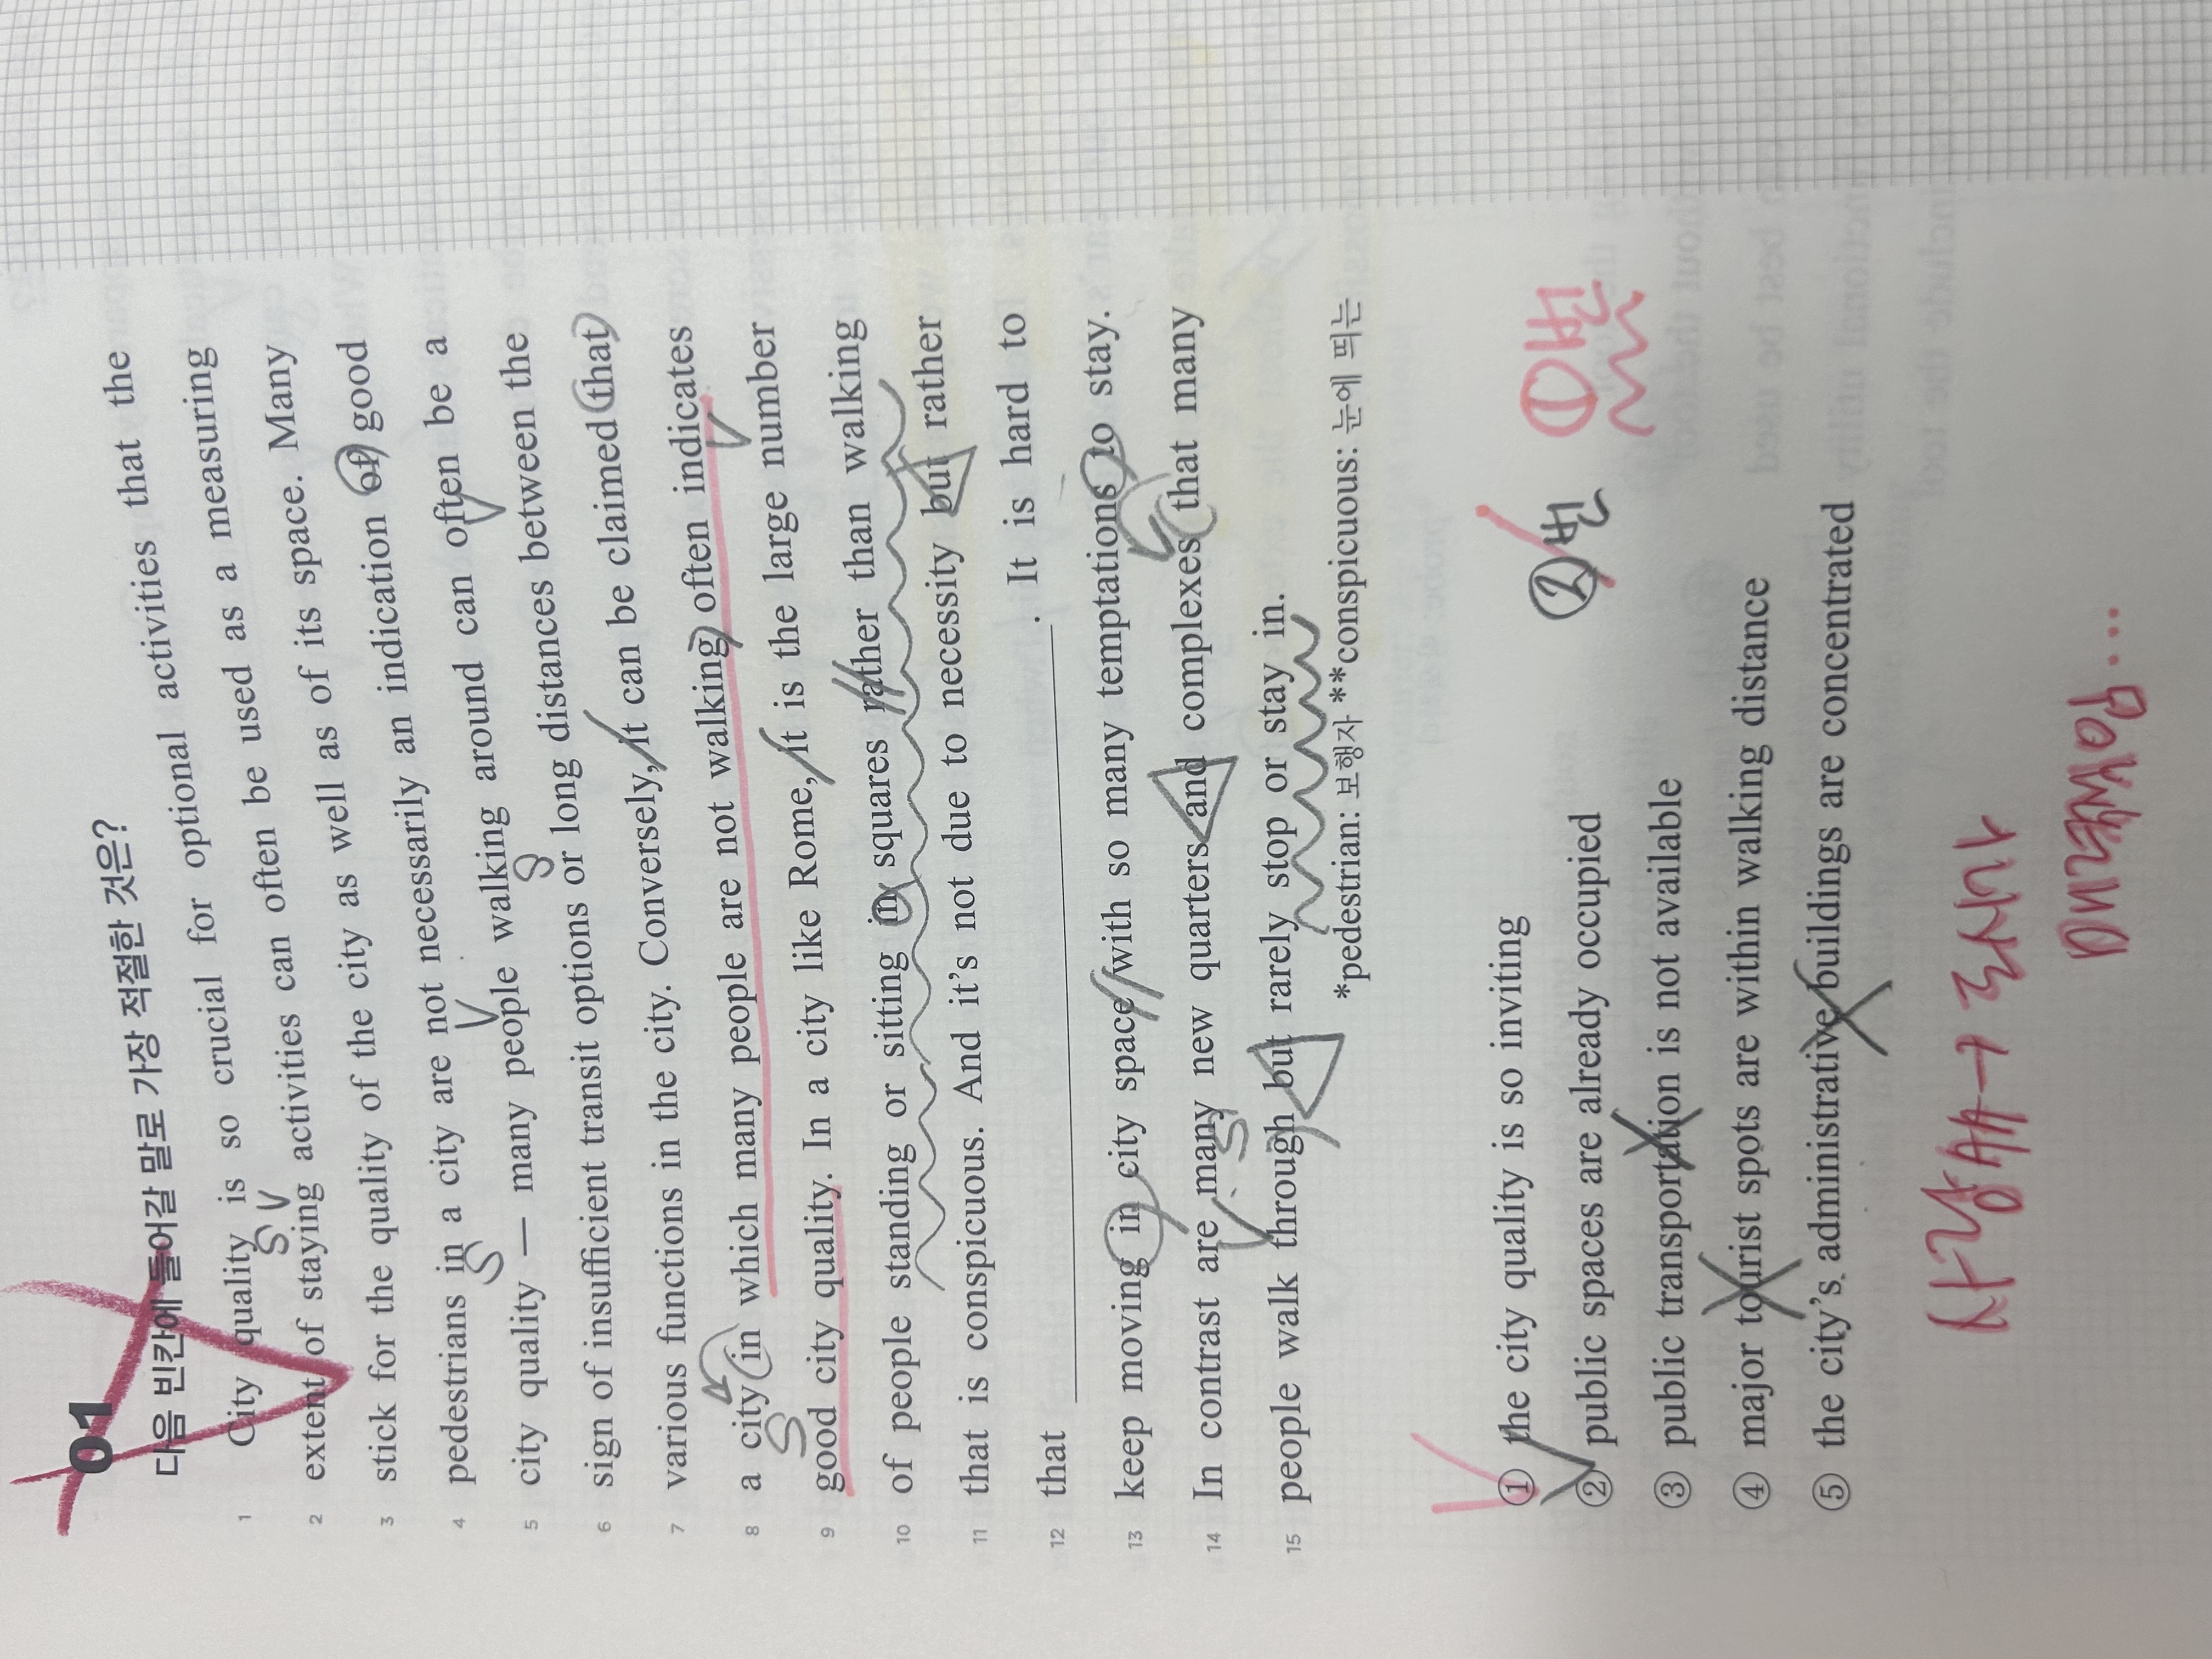 01
다음 빈칸에 들어갈 말로 가장 적절한 것은?
1 City quality is so crucial for optional activities that the
2 extent of staying activities can often be used as a measuring
3 stick for the quality of the city as well as of its space. Many
4 pedestrians in a city are not necessarily an indication of good
5 city quality — many people walking around can often be a
6 sign of insufficient transit options or long distances between the
7 various functions in the city. Conversely, it can be claimed that
8 a city in which many people are not walking often indicates
9 good city quality. In a city like Rome, it is the large number
10 of people standing or sitting in squares rather than walking
11 that is conspicuous. And it's not due to necessity but rather
12 that ____________. It is hard to
13 keep moving in city space with so many temptations to stay.
14 In contrast are many new quarters and complexes that many
15 people walk through but rarely stop or stay in.
*pedestrian: 보행자 **conspicuous: 눈에 띄는
① the city quality is so inviting
② public spaces are already occupied
③ public transportation is not available
④ major tourist spots are within walking distance
⑤ the city's administrative buildings are concentrated
②번 ①번
사람 → 도시가